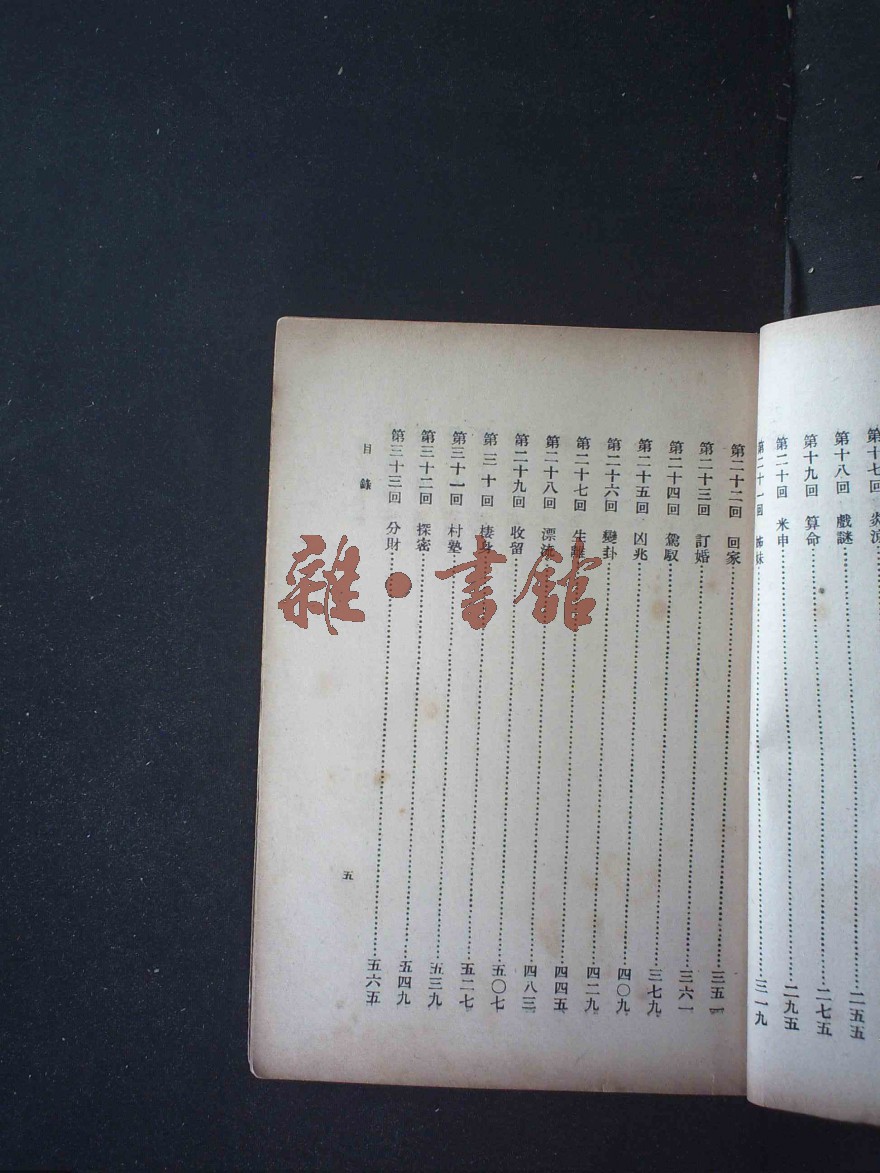 第十七回 炎涼
第十八回 戲謎……二五五
第十九回 算命……二七五
第二十回 米申……二九五
第二十一回 姊妹……三一九
第二十二回 回家……三五一
第二十三回 訂婚……三六一
第二十四回 駕馭……三七九
第二十五回 凶兆……四〇九
第二十六回 變卦……四二九
第二十七回 生離……四四五
第二十八回 漂流……四八三
第二十九回 收留……五〇七
第三十回 棲身……五二七
第三十一回 村塾……五三九
第三十二回 探密……五四九
第三十三回 分財……五六五
目錄
五
雜·書館